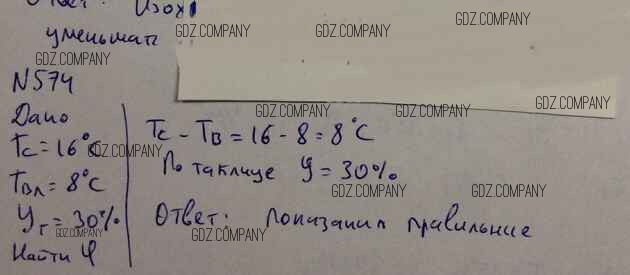 Ответ: Изох
уменьшат
N574
Дано
Tс = 16°C
Tвл = 8°C
Yг = 30%
Найти φ
Tс - Tв = 16 - 8 = 8°C
По таблице φ = 30%
Ответ: показания правильные
GDZ.COMPANY
GDZ.COMPANY
GDZ.COMPANY
GDZ.COMPANY
GDZ.COMPANY
GDZ.COMPANY
GDZ.COMPANY
GDZ.COMPANY
GDZ.COMPANY
GDZ.COMPANY
GDZ.COMPANY
GDZ.COMPANY